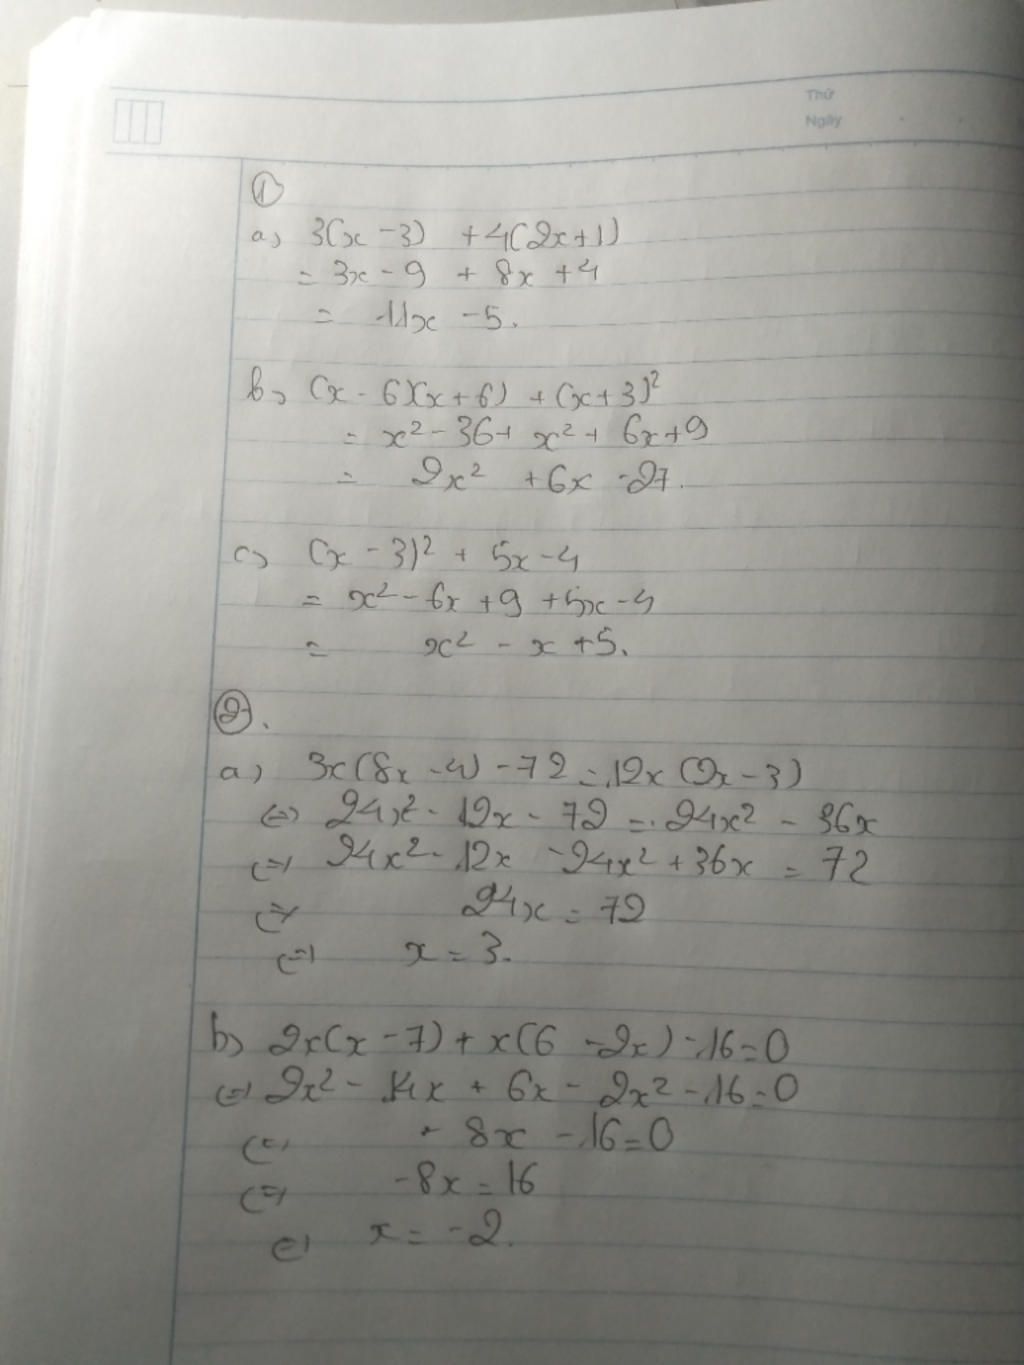 Thứ
Ngày
①
a) 3(x - 3) + 4(2x+1)
= 3x - 9 + 8x + 4
= 11x - 5.
b) (x - 6)(x + 6) + (x + 3)²
= x² - 36 + x² + 6x + 9
= 2x² + 6x - 27.
c) (x - 3)² + 5x - 4
= x² - 6x + 9 + 5x - 4
= x² - x + 5.
②.
a) 3x(8x - 4) - 72 = 12x(2x - 3)
⇔ 24x² - 12x - 72 = 24x² - 36x
⇔ 24x² - 12x - 24x² + 36x = 72
⇔ 24x = 72
⇔ x = 3.
b) 2x(x - 7) + x(6 - 2x) - 16 = 0
⇔ 2x² - 14x + 6x - 2x² - 16 = 0
⇔ - 8x - 16 = 0
⇔ -8x = 16
⇔ x = -2.